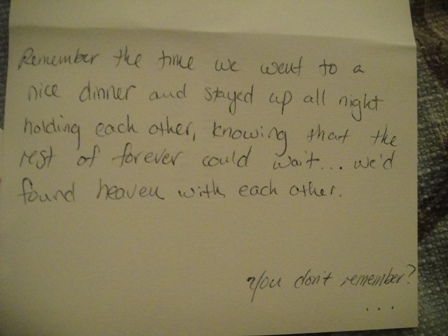 Remember the time we went to a
nice dinner and stayed up all night
holding each other, knowing that the
rest of forever could wait... we'd
found heaven with each other.
You don't remember?
...